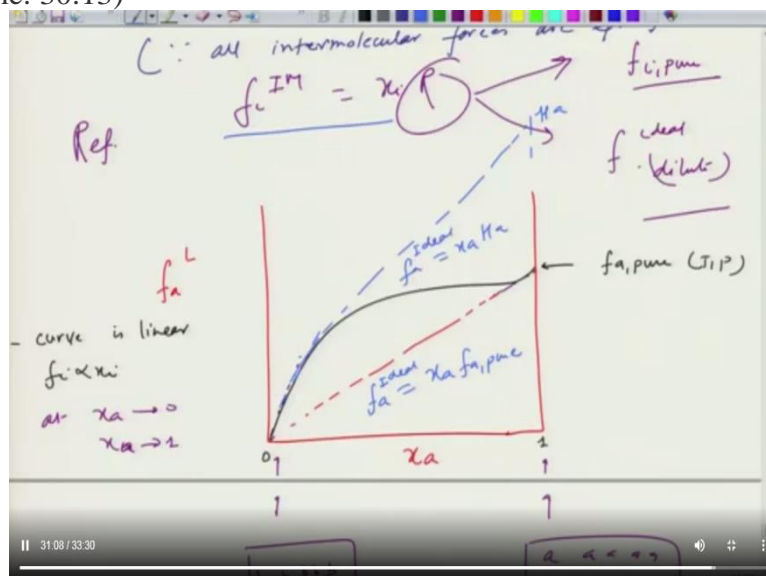 (∵ all intermolecular forces are
fi^IM = xi P
fi,pure
Ref.
Ha
f^ideal (dilute)
fa^L
fa^Ideal = xa Ha
fa,pure (T,P)
- curve is linear
fi ∝ xi
as xa → 0
xa → 1
fa^Ideal = xa fa,pure
0 xa 1
a a a a a
31:08 / 33:30